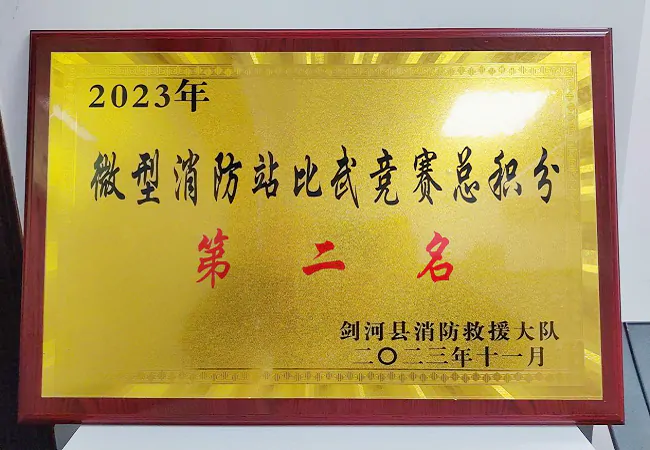 2023年
微型消防站比武竞赛总积分
第二名
剑河县消防救援大队
二〇二三年十一月